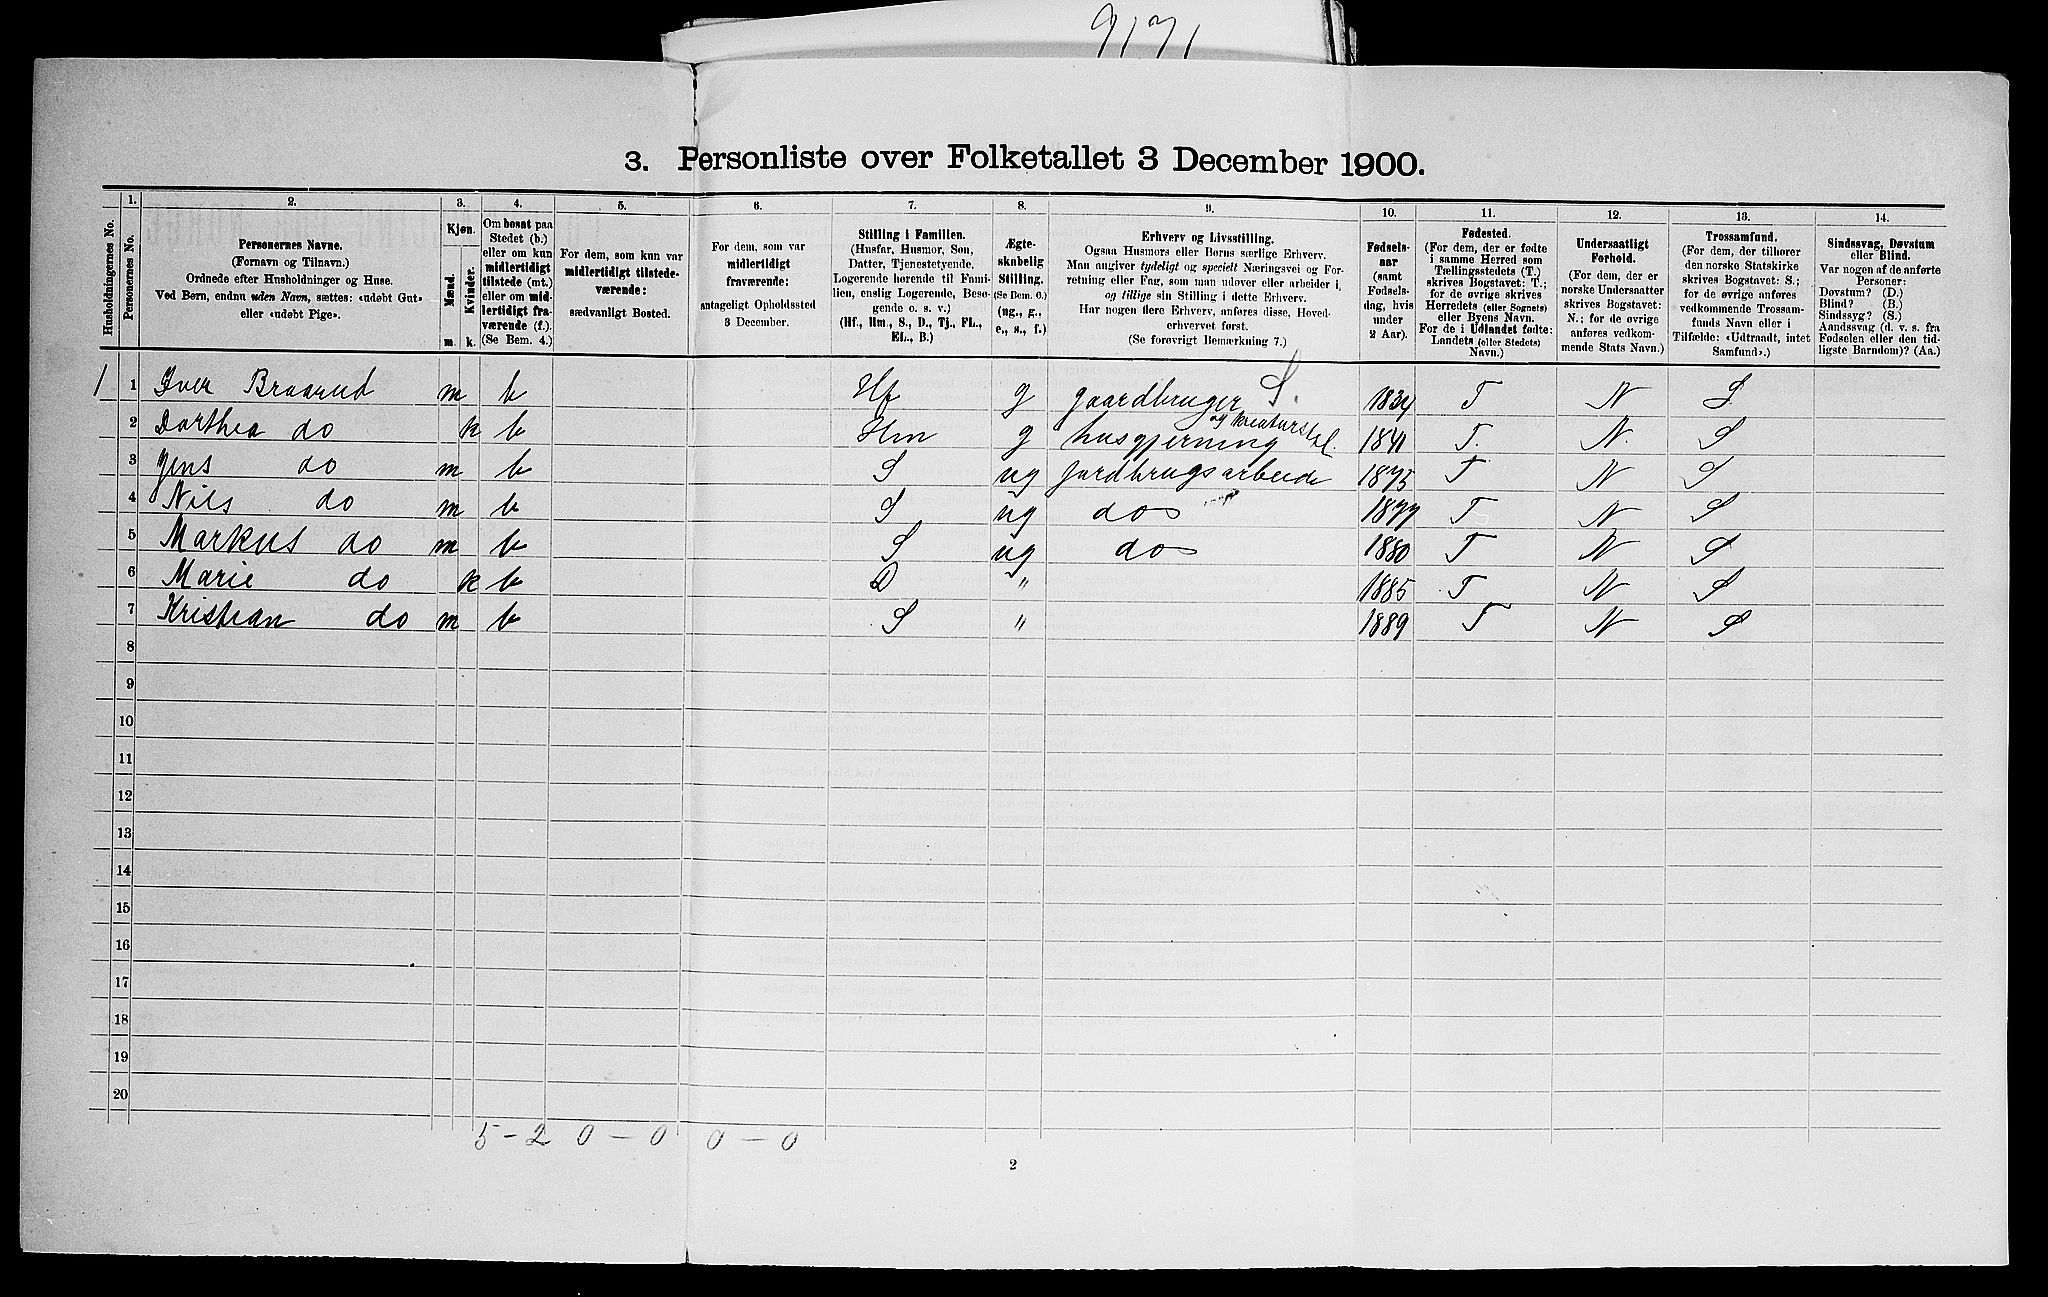 9171
3. Personliste over Folketallet 3 December 1900.
Husholdningernes No.
1.
Personernes No.
2.
Personernes Navne.
(Fornavn og Tilnavn.)
Ordnede efter Husholdninger og Huse.
Ved Børn, endnu uden Navn, sættes: «udøbt Gut»
eller «udøbt Pige».
3.
Kjøn.
Mænd.
Kvinder.
m. k.
4.
Om bosat paa
Stedet (b.)
eller om kun
midlertidigt
tilstede (mt.)
eller om mid-
lertidigt fra-
værende (f.).
(Se Bem. 4.)
5.
For dem, som kun var
midlertidigt tilstede-
værende:
sædvanligt Bosted.
6.
For dem, som var
midlertidigt
fraværende:
antageligt Opholdssted
3 December.
7.
Stilling i Familien.
(Husfar, Husmor, Søn,
Datter, Tjenestetyende,
Logerende hørende til Fami-
lien, enslig Logerende, Besø-
gende o. s. v.)
(Hf., Hm., S., D., Tj., FL.,
EL., B.)
8.
Ægte-
skabelig
Stilling.
(Se Bem. 6.)
(ug., g.,
e., s., f.)
9.
Erhverv og Livsstilling.
Ogsaa Husmors eller Børns særlige Erhverv.
Man angiver tydeligt og specielt Næringsvei og For-
retning eller Fag, som man udøver eller arbeider i,
og tillige sin Stilling i dette Erhverv.
Har nogen flere Erhverv, anføres disse, Hoved-
erhvervet først.
(Se forøvrigt Bemærkning 7.)
10.
Fødsels-
aar
(samt
Fødsels-
dag, hvis
under
2 Aar).
11.
Fødested.
(For dem, der er fødte
i samme Herred som
Tællingsstedets (T.)
skrives Bogstavet: T.;
for de øvrige skrives
Herredets (eller Sognets)
eller Byens Navn.
For de i Udlandet fødte:
Landets (eller Stedets)
Navn.)
12.
Undersaatligt
Forhold.
(For dem, der er
norske Undersaatter
skrives Bogstavet:
N.; for de øvrige
anføres vedkom-
mende Stats Navn.)
13.
Trossamfund.
(For dem, der tilhører
den norske Statskirke
skrives Bogstavet: S.;
for de øvrige anføres
vedkommende Trossam-
funds Navn eller i
Tilfælde: «Udtraadt, intet
Samfund».)
14.
Sindssvag, Døvstum
eller Blind.
Var nogen af de anførte
Personer:
Døvstum? (D.)
Blind? (B.)
Sindssyg? (S.)
Aandssvag (d. v. s. fra
Fødselen eller den tid-
ligste Barndom)? (Aa.)
1 1 Iver Braarud m b Hf g gaardbruger S. 1834 T N S
2 Dorthea do k b Hm g husgjerning og kreaturstel. 1841 T. N. S
3 Jens do m b S ug jordbrugsarbeide 1875 T N S
4 Nils do m b S ug do 1877 T N S
5 Markus do m b S ug do 1880 T N S
6 Marie do k b D " 1885 T N S
7 Kristian do m b S " 1889 T N S
8
9
10
11
12
13
14
15
16
17
18
19
20
5 - 2 0 - 0 0 - 0
2